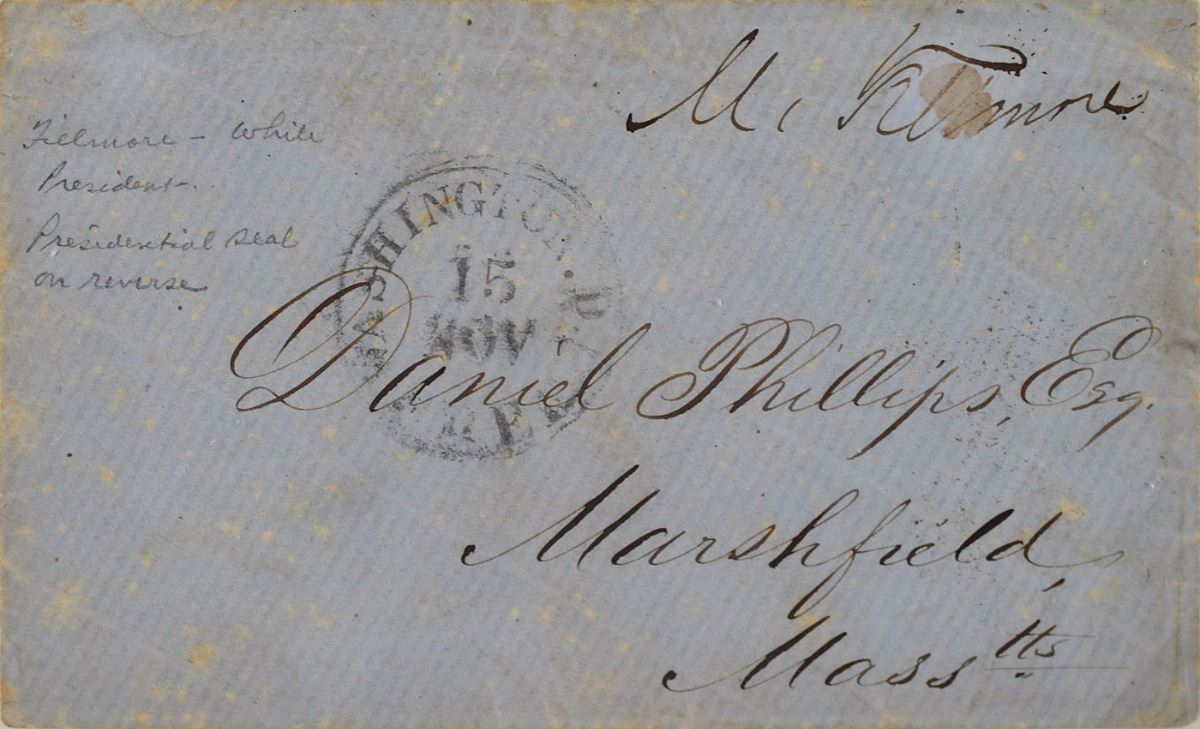 Fillmore - while
President -
Presidential seal
on reverse
WASHINGTON. D.C.
15
NOV
FREE
Daniel Phillips, Esq.
Marshfield,
Mass tts